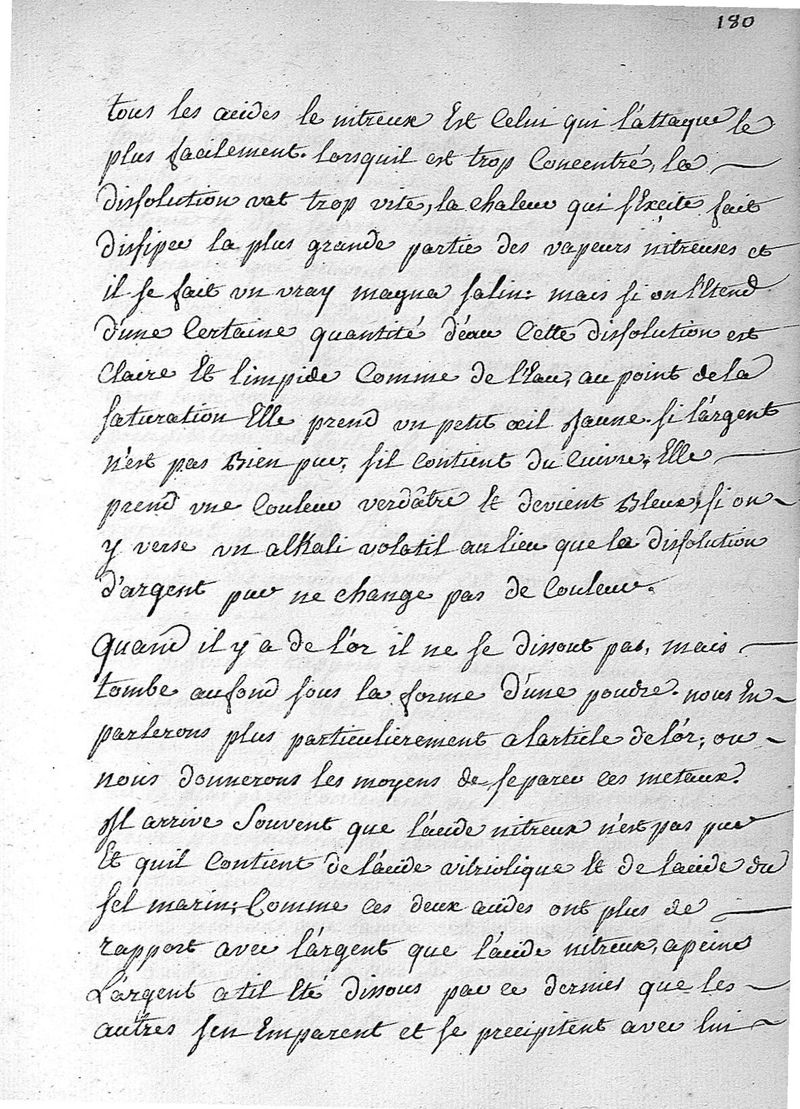 180
tous les acides le nitreux Est Celui qui l'attaque le
plus facilement. lorsquil est trop Concentré, la
dissolution vat trop vite, la chaleur qui s'Excite fait
dissiper la plus grande partie des vapeurs nitreuses et
il se fait un vray magna salin: mais si on l'Etend
d'une Certaine quantité d'eau Cette dissolution est
Claire Et limpide Comme de l'Eau, au point de la
saturation Elle prend un petit œil Jaune si l'argent
n'est pas Bien pur, s'il contient du Cuivre, Elle
prend une Couleur verdâtre Et devient Bleue, si on
y verse un alkali volatil au lieu que la dissolution
d'argent pur ne change pas de Couleur.
Quand il y a de l'or il ne se dissout pas, mais
tombe au fond sous la forme d'une poudre. nous En
parlerons plus particulierement a larticle de l'or, ou
nous donnerons les moyens de separer ces metaux.
Il arrive Souvent que l'acide nitreux n'est pas pur
Et quil Contient de l'acide vitriolique Et de lacide du
sel marin; Comme ces deux acides ont plus de
rapport avec l'argent que l'acide nitreux, apeine
L'argent atil Eté dissous par ce dernier que les
autres s'en Emparent et se precipitent avec lui